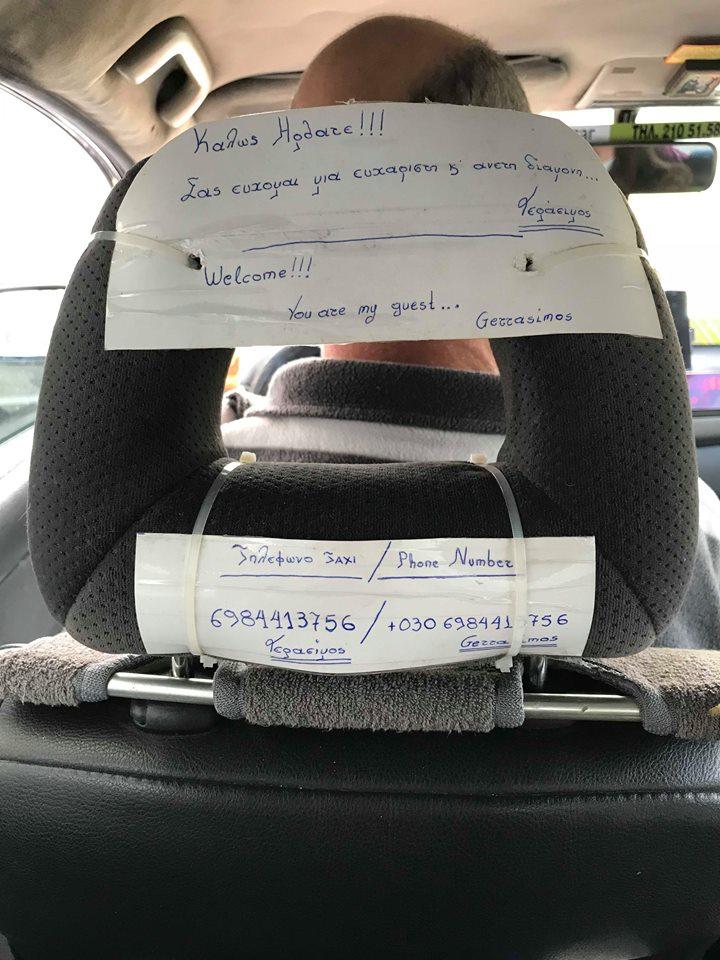 ΤΗΛ. 210 51.58
Καλως Ηρθατε!!!
Σας ευχομαι μια ευχαριστη κ' ανετη διαμονη...
Γεράσιμος
Welcome!!!
You are my guest...
Gerrasimos
Τηλεφωνο ΤΑΧΙ / Phone Number
6984413756 / +030 6984413756
Γερασιμος Gerrasimos